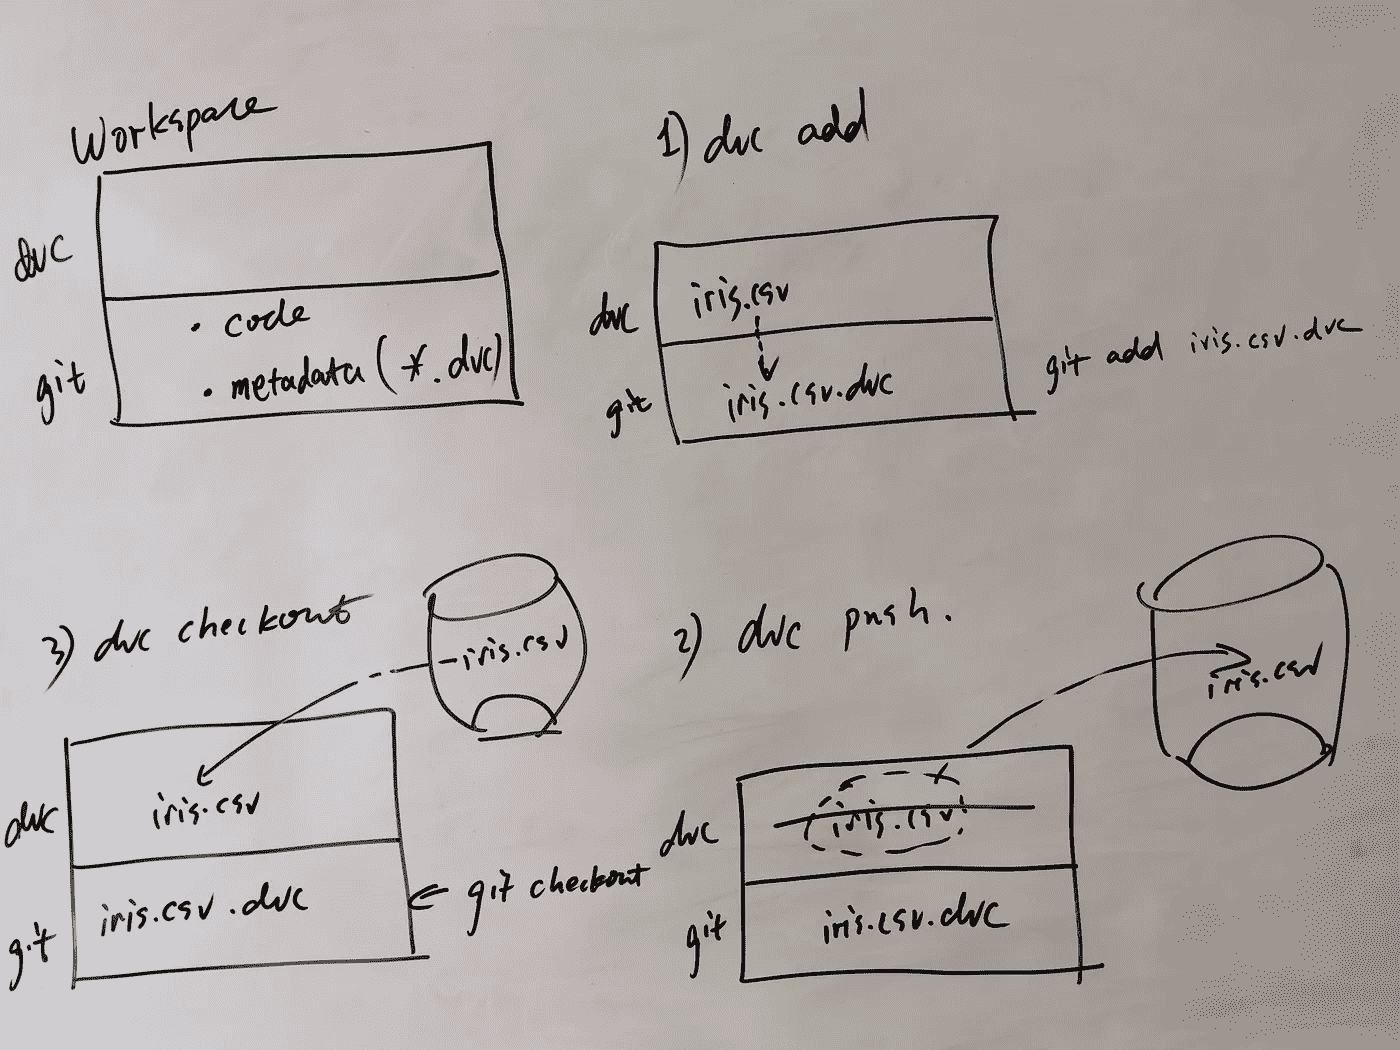 Workspace
dvc
• code
git
• metadata (*.dvc)
1) dvc add
dvc
iris.csv
git
iris.csv.dvc
git add iris.csv.dvc
3) dvc checkout
iris.csv
dvc
iris.csv
git
iris.csv.dvc
git checkout
2) dvc push.
iris.csv
dvc
iris.csv
git
iris.csv.dvc